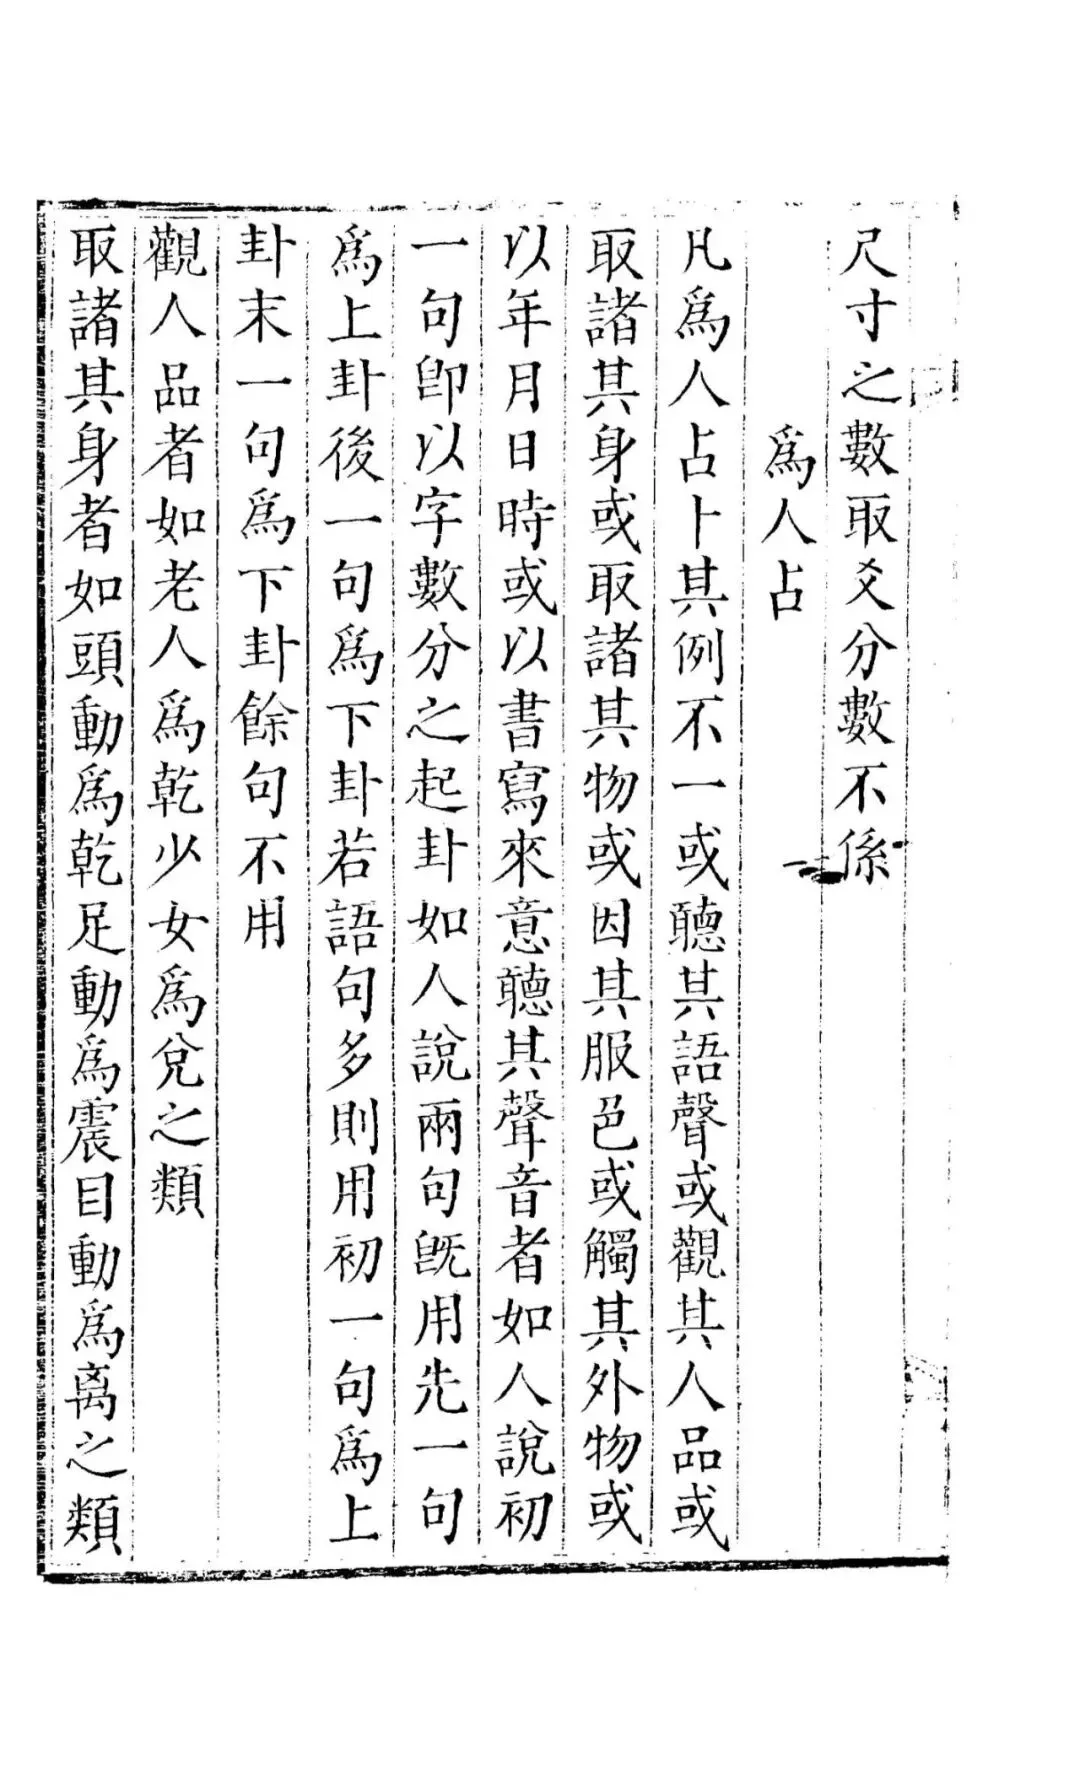 尺寸之數取爻分數不係
爲人占
凡爲人占卜其例不一或聽其語聲或觀其人品或
取諸其身或取諸其物或因其服色或觸其外物或
以年月日時或以書寫來意聽其聲音者如人說初
一句卽以字數分之起卦如人說兩句旣用先一句
爲上卦後一句爲下卦若語句多則用初一句爲上
卦末一句爲下卦餘句不用
觀人品者如老人爲乾少女爲兌之類
取諸其身者如頭動爲乾足動爲震目動爲离之類